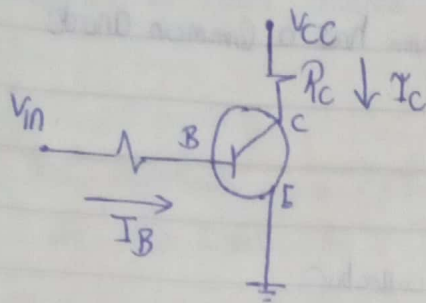 VCC
RC ↓ IC
Vin
B
C
E
IB